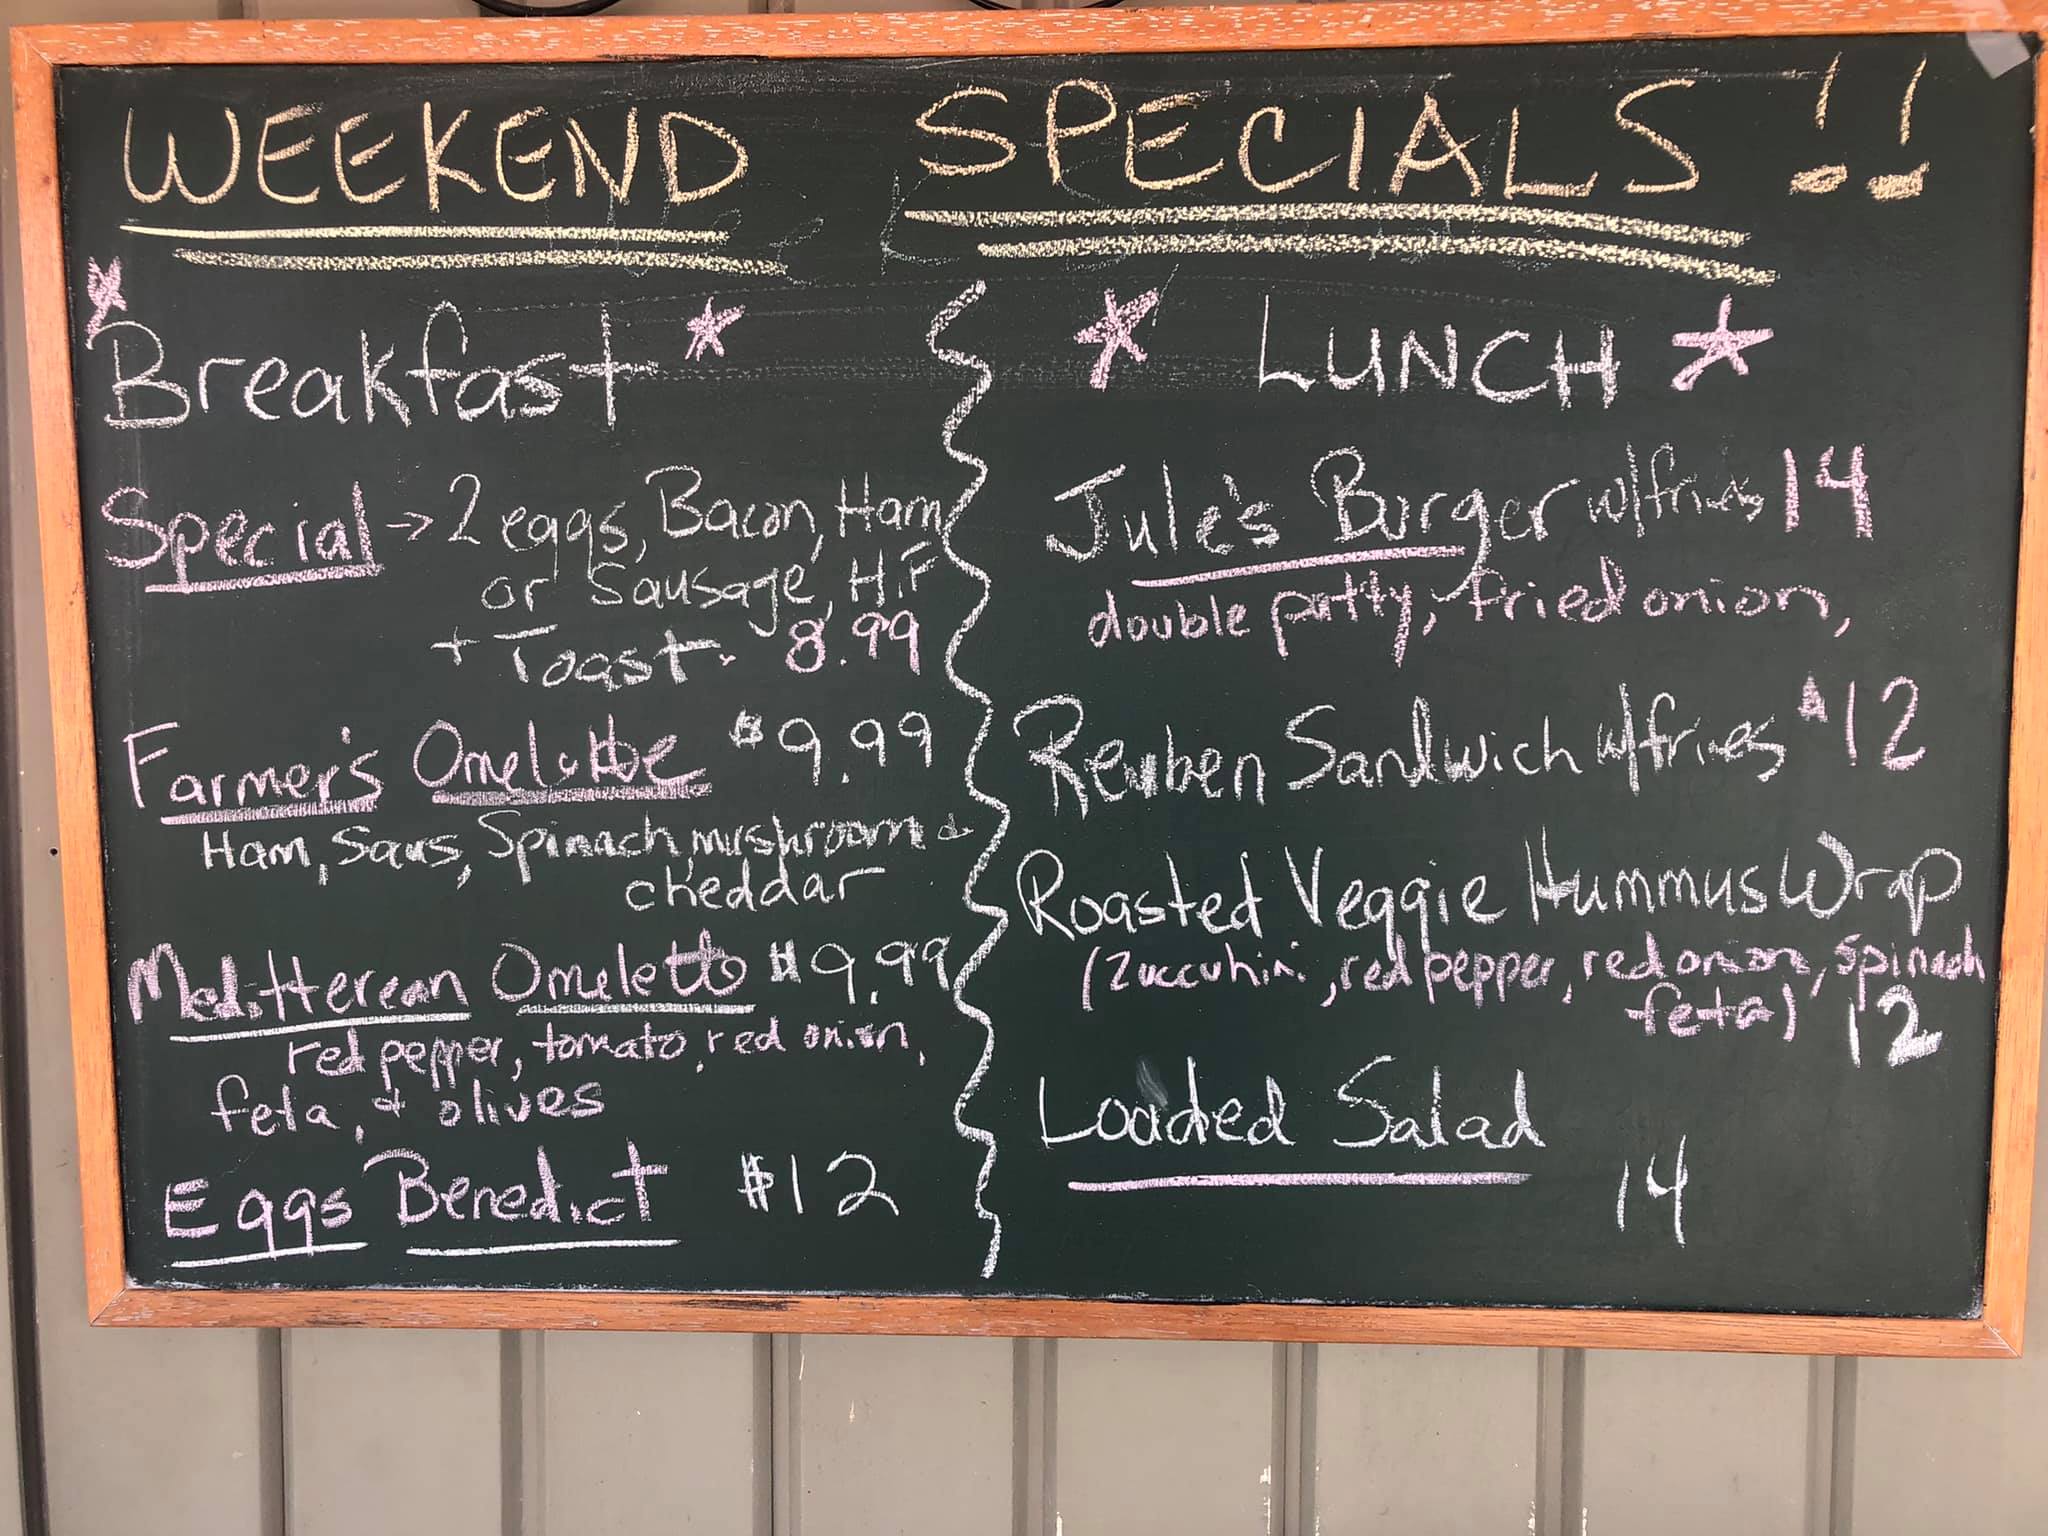 WEEKEND SPECIALS !!
Breakfast
Special → 2 eggs, Bacon, Ham
or Sausage, H.F
+ Toast. 8.99
Farmer's Omelette $9.99
Ham, Saus, Spinach, mushroom &
cheddar
Meditterean Omelette $9.99
red pepper, tomato, red onion,
feta, & olives
Eggs Benedict $12
LUNCH
Jule's Burger w/fries 14
double patty, fried onion,
Reuben Sandwich w/fries $12
Roasted Veggie Hummus Wrap
(Zuccuhini, red pepper, red onion, spinach
feta) 12
Loaded Salad
14